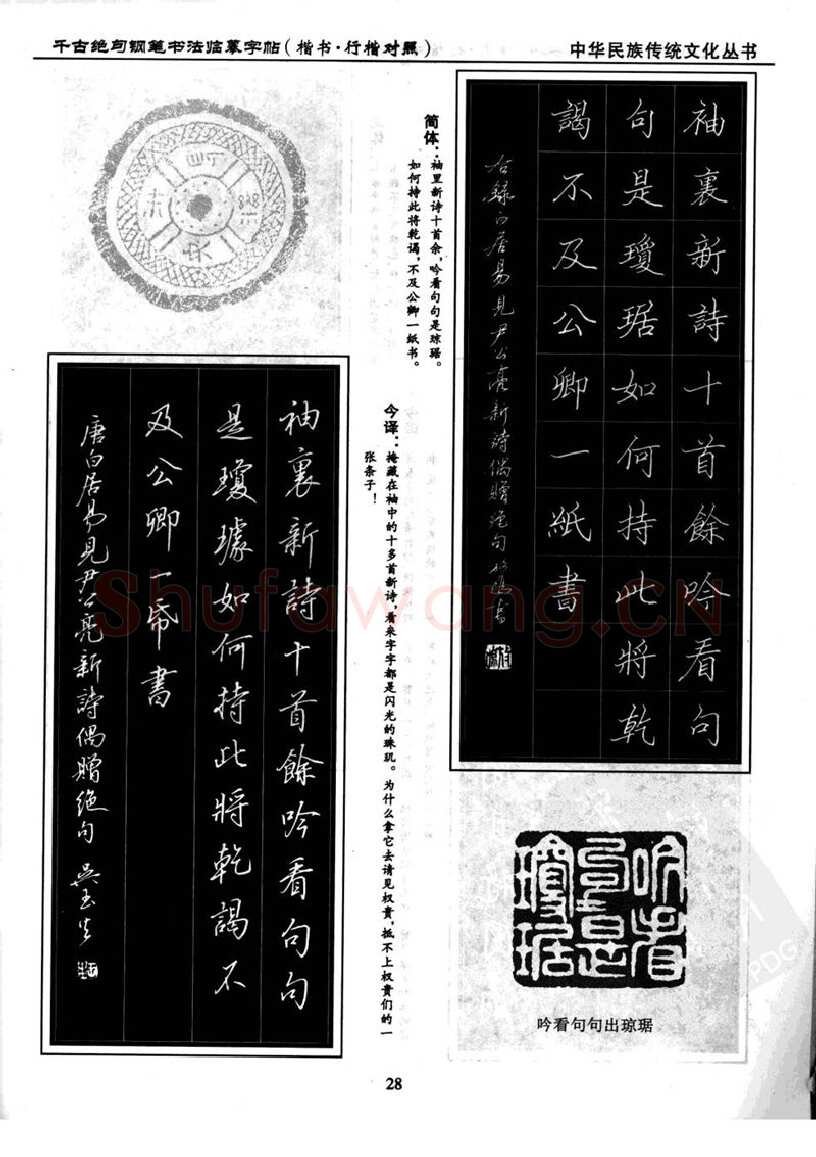 千古绝句钢笔书法临摹字帖(楷书·行楷对照)
中华民族传统文化丛书
袖裏新詩十首餘吟看句
句是瓊琚如何持此將乾
謁不及公卿一紙書
右錄白居易見尹公亮新詩偶贈絕句
简体：袖里新诗十首余，吟看句句是琼琚。
如何持此将乾谒，不及公卿一纸书。
今译：掩藏在袖中的十多首新诗，看来字字都是闪光的珠玑。为什么拿它去请见权贵，抵不上权贵们的一
张条子！
袖裏新詩十首餘吟看句句
是瓊璩如何持此將乾謁不
及公卿一帋書
唐白居易見尹公亮新詩偶贈絕句 吳玉生
吟看句句是瓊琚
吟看句句出琼琚
28
Shufawang.CN
PDG